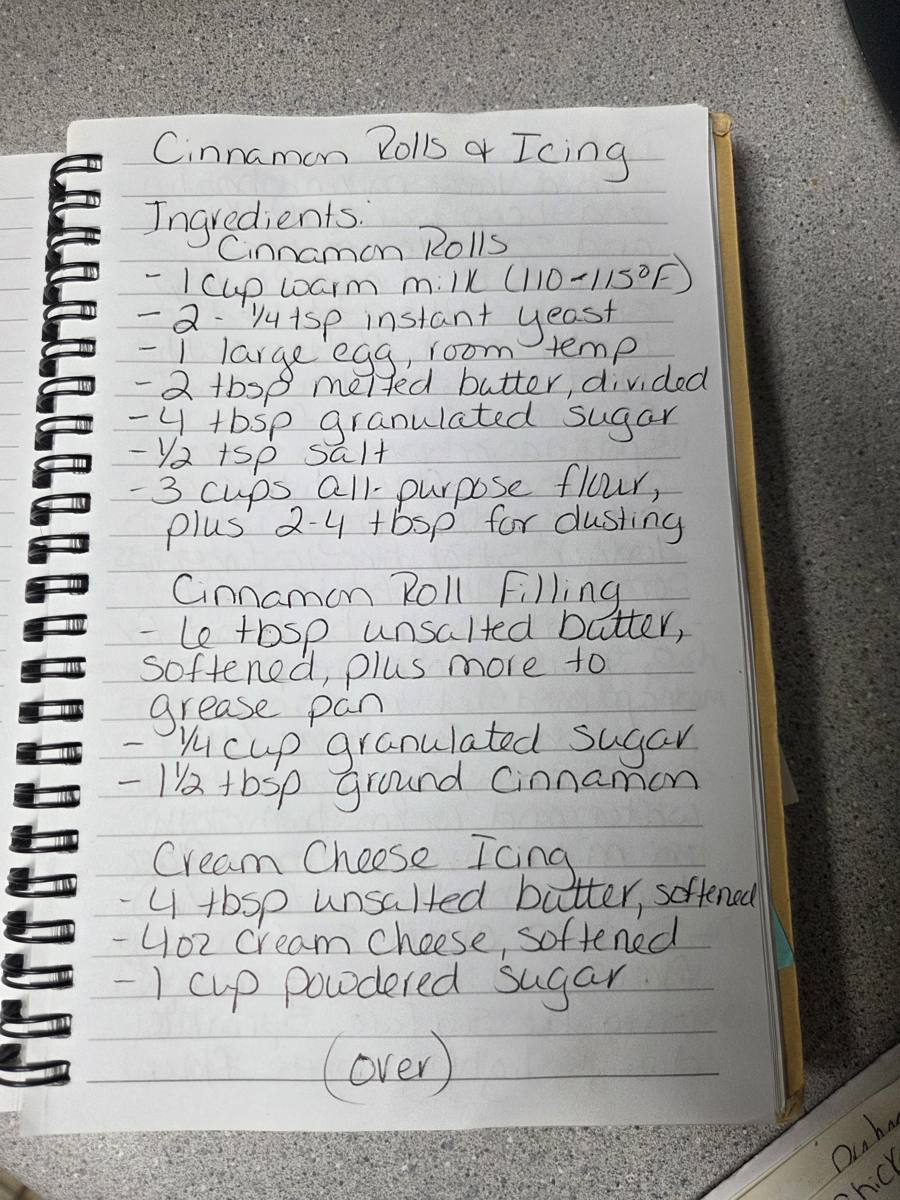 Cinnamon Rolls & Icing
Ingredients:
Cinnamon Rolls
- 1 cup warm milk (110-115°F)
- 2 - 1/4 tsp instant yeast
- 1 large egg, room temp
- 2 tbsp melted butter, divided
- 4 tbsp granulated sugar
- 1/2 tsp salt
- 3 cups all-purpose flour,
plus 2-4 tbsp for dusting
Cinnamon Roll Filling
- 6 tbsp unsalted butter,
softened, plus more to
grease pan
- 1/4 cup granulated sugar
- 1 1/2 tbsp ground cinnamon
Cream Cheese Icing
- 4 tbsp unsalted butter, softened
- 4oz cream cheese, softened
- 1 cup powdered sugar
(over)